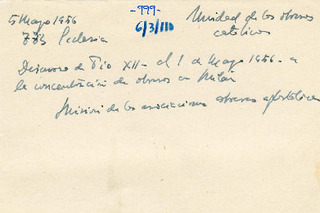 -999-
5 Mayo 1956
Unidad de los obreros
católicos
6/3/III
773 Ecclesia
Discurso de Pío XII - el 1 de Mayo 1956 - a
la concentración de obreros en Milán
Misión de las asociaciones obreras apostólicas